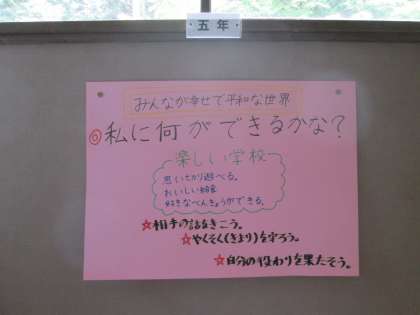 五年
みんなが幸せで平和な世界
◎私に何ができるかな？
楽しい学校
思いきり遊べる。
おいしい給食
好きなべんきょうができる。
☆相手の話をきこう。
☆やくそく(きまり)を守ろう。
☆自分の役わりを果たそう。